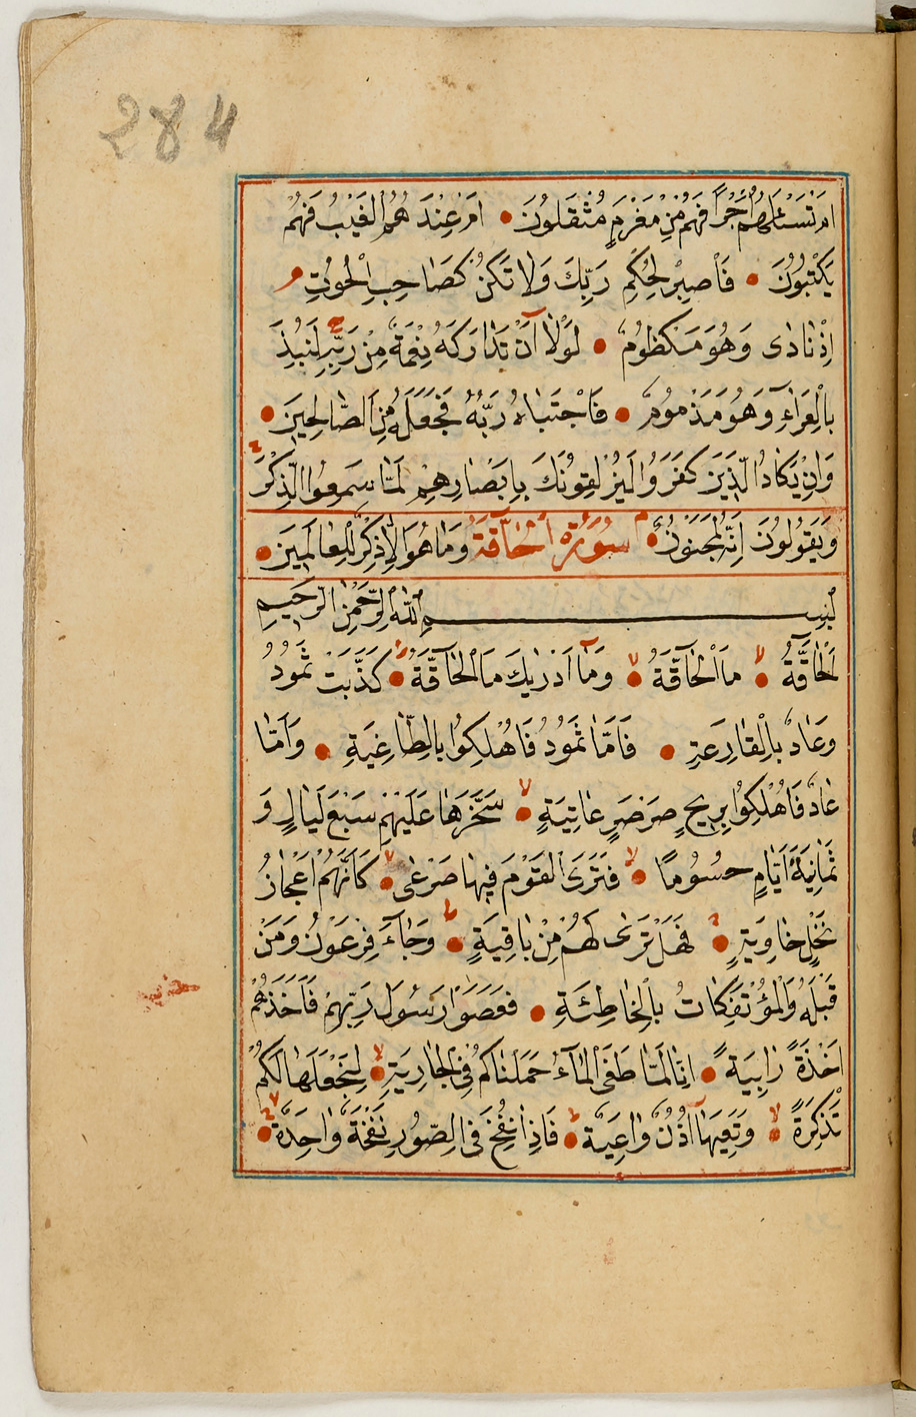 284
اَمْ تَسْـَٔلُهُمْ اَجْرًا فَهُمْ مِنْ مَغْرَمٍ مُثْقَلُونَ اَمْ عِنْدَهُمُ الْغَيْبُ فَهُمْ
يَكْتُبُونَ فَاصْبِرْ لِحُكْمِ رَبِّكَ وَلَا تَكُنْ كَصَاحِبِ الْحُوتِ م
اِذْ نَادٰى وَهُوَ مَكْظُومٌ لَوْلَا اَنْ تَدَارَكَهُ نِعْمَةٌ مِنْ رَبِّهِ لَنُبِذَ
بِالْعَرَاءِ وَهُوَ مَذْمُومٌ فَاجْتَبَاهُ رَبُّهُ فَجَعَلَهُ مِنَ الصَّالِحِينَ
وَاِنْ يَكَادُ الَّذِينَ كَفَرُوا لَيُزْلِقُونَكَ بِاَبْصَارِهِمْ لَمَّا سَمِعُوا الذِّكْرَ
وَيَقُولُونَ اِنَّهُ لَمَجْنُونٌ سُورَةُ الْحَاقَّةِ وَمَا هُوَ اِلَّا ذِكْرٌ لِلْعَالَمِينَ
بِسْمِ اللّٰهِ الرَّحْمٰنِ الرَّحِيمِ
اَلْحَاقَّةُ مَا الْحَاقَّةُ وَمَا اَدْرٰيكَ مَا الْحَاقَّةُ كَذَّبَتْ ثَمُودُ
وَعَادٌ بِالْقَارِعَةِ فَاَمَّا ثَمُودُ فَاُهْلِكُوا بِالطَّاغِيَةِ وَاَمَّا
عَادٌ فَاُهْلِكُوا بِرِيحٍ صَرْصَرٍ عَاتِيَةٍ سَخَّرَهَا عَلَيْهِمْ سَبْعَ لَيَالٍ وَ
ثَمَانِيَةَ اَيَّامٍ حُسُومًا فَتَرَى الْقَوْمَ فِيهَا صَرْعٰى كَاَنَّهُمْ اَعْجَازُ
نَخْلٍ خَاوِيَةٍ فَهَلْ تَرٰى لَهُمْ مِنْ بَاقِيَةٍ وَجَاءَ فِرْعَوْنُ وَمَنْ
قَبْلَهُ وَالْمُؤْتَفِكَاتُ بِالْخَاطِئَةِ فَعَصَوْا رَسُولَ رَبِّهِمْ فَاَخَذَهُمْ
اَخْذَةً رَابِيَةً اِنَّا لَمَّا طَغَى الْمَاءُ حَمَلْنَاكُمْ فِي الْجَارِيَةِ لِنَجْعَلَهَا لَكُمْ
تَذْكِرَةً وَتَعِيَهَا اُذُنٌ وَاعِيَةٌ فَاِذَا نُفِخَ فِي الصُّورِ نَفْخَةٌ وَاحِدَةٌ